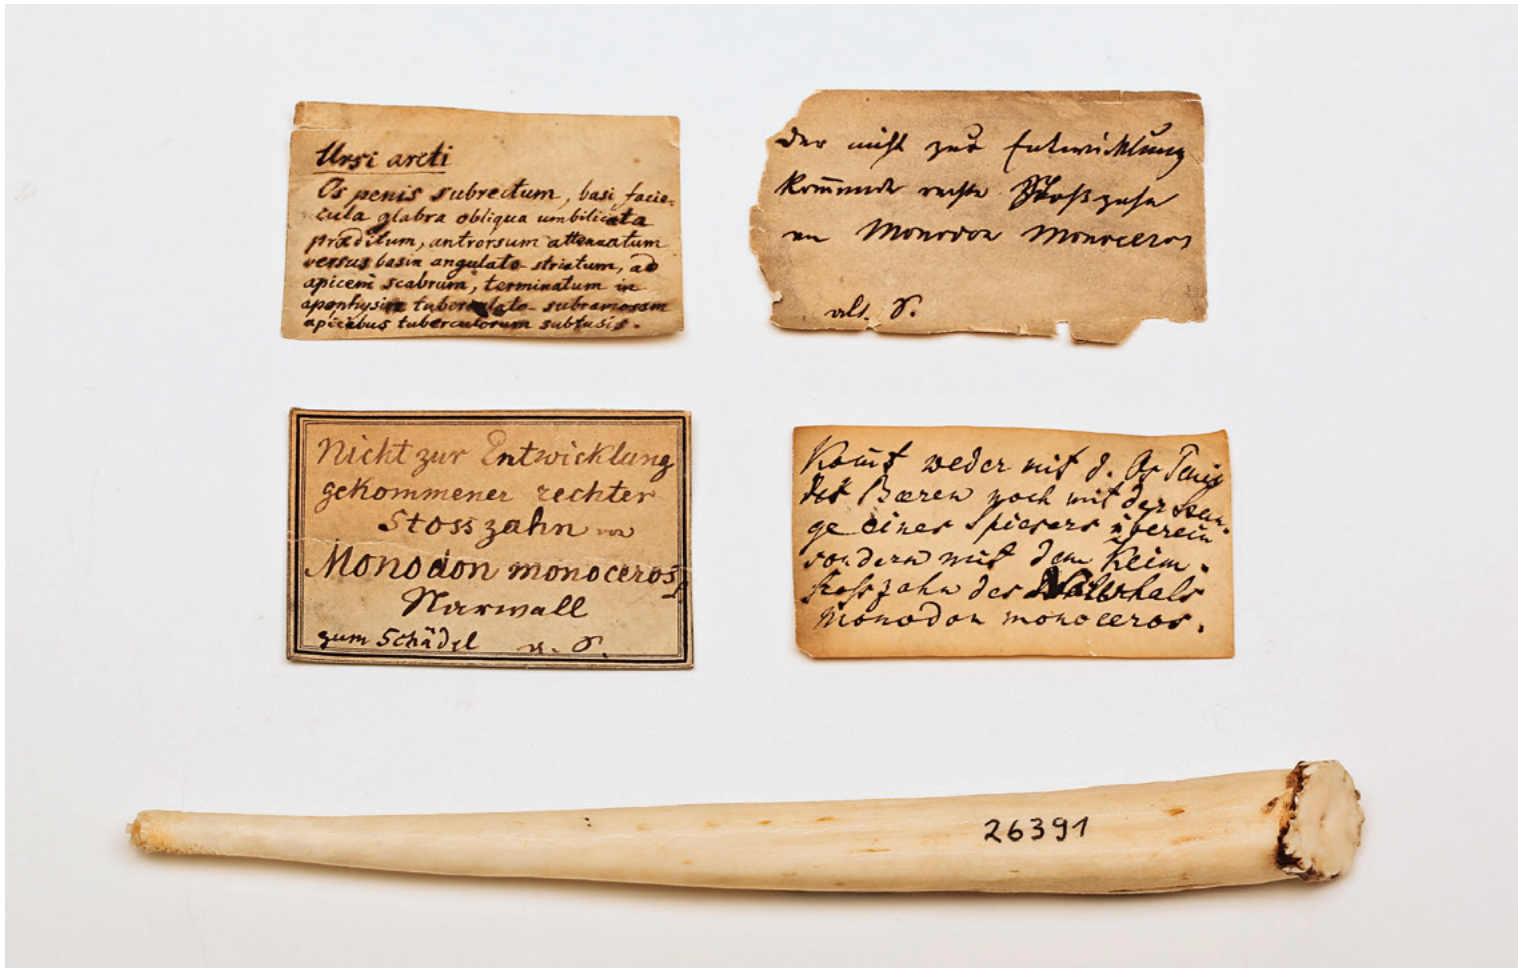 Ursi arcti
Os penis subrectum, basi facie-
cula glabra obliqua umbilicata
præditum, antrorsum attenuatum
versus basin angulato-striatum, ad
apicem scabrum, terminatum in
apophysin tuberculato-subramosam
apicibus tuberculorum subfusis.
Der nicht zur Entwicklung
kom̅ende rechte Stoßzahn
von Monodon Monoceros
Nicht zur Entwicklung
gekommener rechter
Stosszahn von
Monodon monoceros
Narwall
zum Schädel
Kom̅t weder mit d. Os Penis
des Bæren noch mit der Stan-
ge eines Spiesers überein
sondern mit dem Keim-
stosszahn des Narwhals
Monodon monoceros.
26391